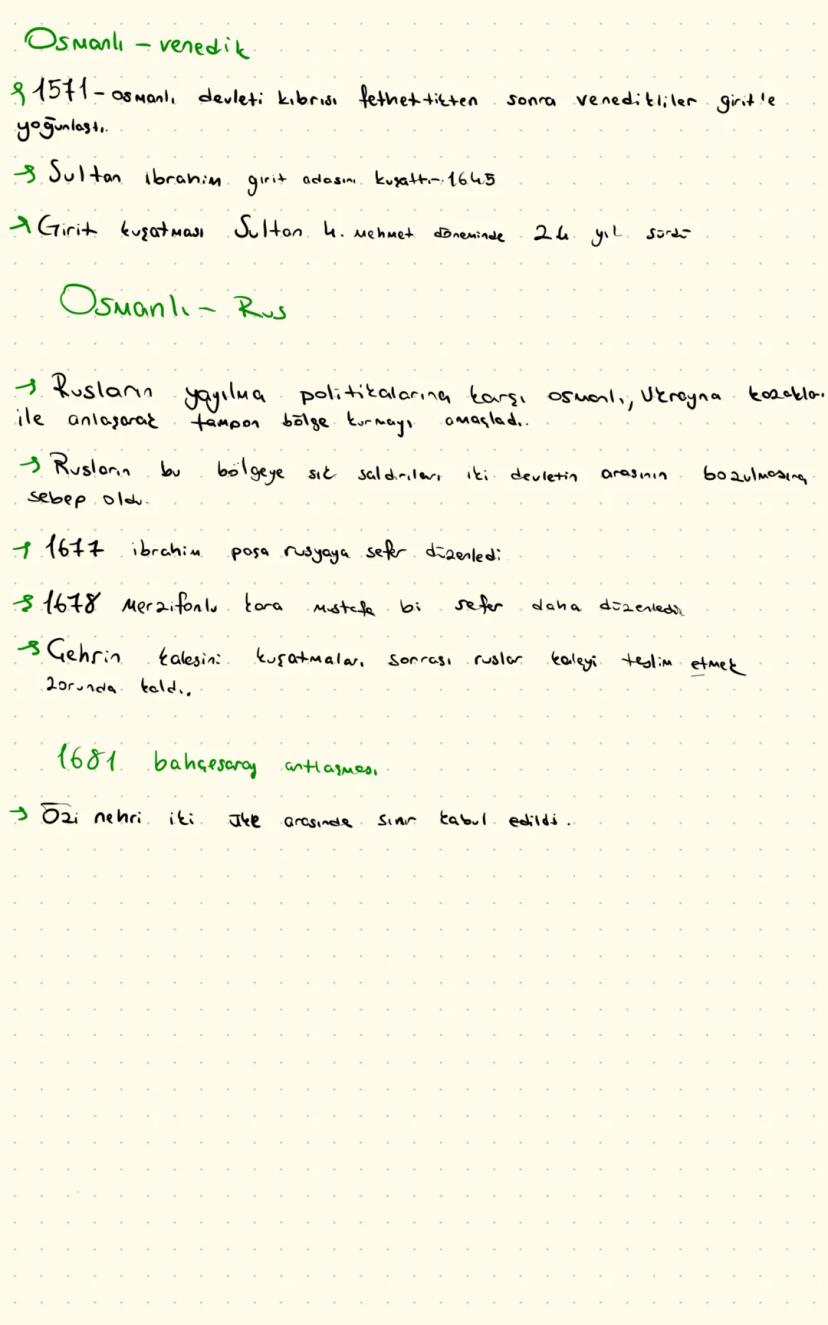 Osmanlı - venedik
→ 1571 - osmanlı devleti kıbrısı fethettikten sonra venedikliler girit'e
yoğunlaştı.
→ Sultan ibrahim girit adasını kuşattı - 1645
→ Girit kuşatması Sultan 4. Mehmet döneminde 24 yıl sürdü
Osmanlı - Rus
→ Rusların yayılma politikalarına karşı osmanlı, Ukrayna kozakları
ile anlaşarak tampon bölge kurmayı amaçladı.
→ Rusların bu bölgeye sık saldırıları iki devletin arasının bozulmasına
sebep oldu.
→ 1677 ibrahim paşa rusyaya sefer düzenledi
→ 1678 Merzifonlu kara mustafa bi sefer daha düzenledi
→ Çehrin kalesini kuşatmaları sonrası ruslar kaleyi teslim etmek
zorunda kaldı.
1681 bahçesaray antlaşması
→ Özi nehri iki ülke arasında sınır kabul edildi.